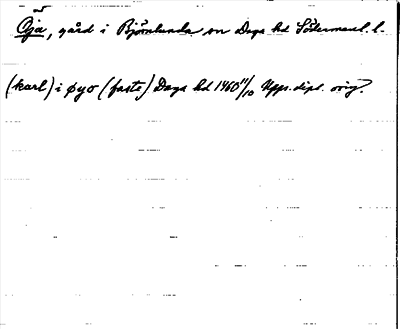 Öja, gård i Björnlunda sn Daga hd Södermanl. l.
(karl) i øyo (faste) Daga hd 1460 11/10 Upps. dipl. orig.